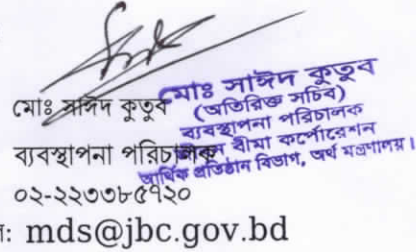 মোঃ সাঈদ কুতুব
ব্যবস্থাপনা পরিচালক
০২-২২৩৩৮৫৭২০
ল: mds@jbc.gov.bd
মোঃ সাঈদ কুতুব
(অতিরিক্ত সচিব)
ব্যবস্থাপনা পরিচালক
জীবন বীমা কর্পোরেশন
আর্থিক প্রতিষ্ঠান বিভাগ, অর্থ মন্ত্রণালয়।